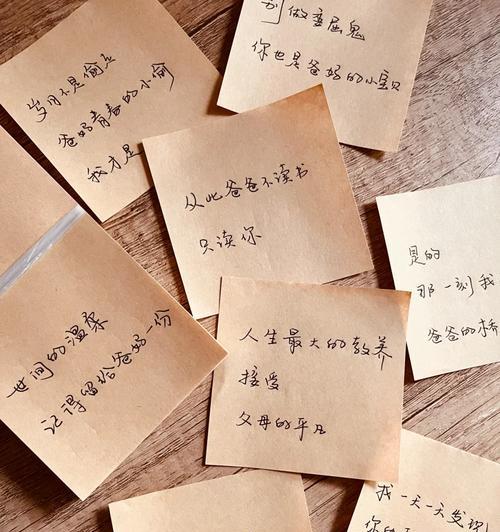 别做委屈鬼
你也是爸妈的小宝贝
岁月不是偷走
爸妈青春的小偷
我才是
从此爸爸不读书
只读你
是的
那一刻我
爸爸的桥
世间的温柔
记得留给爸妈一份
人生最大的教养
接受
父母的平凡
我一天一天发现